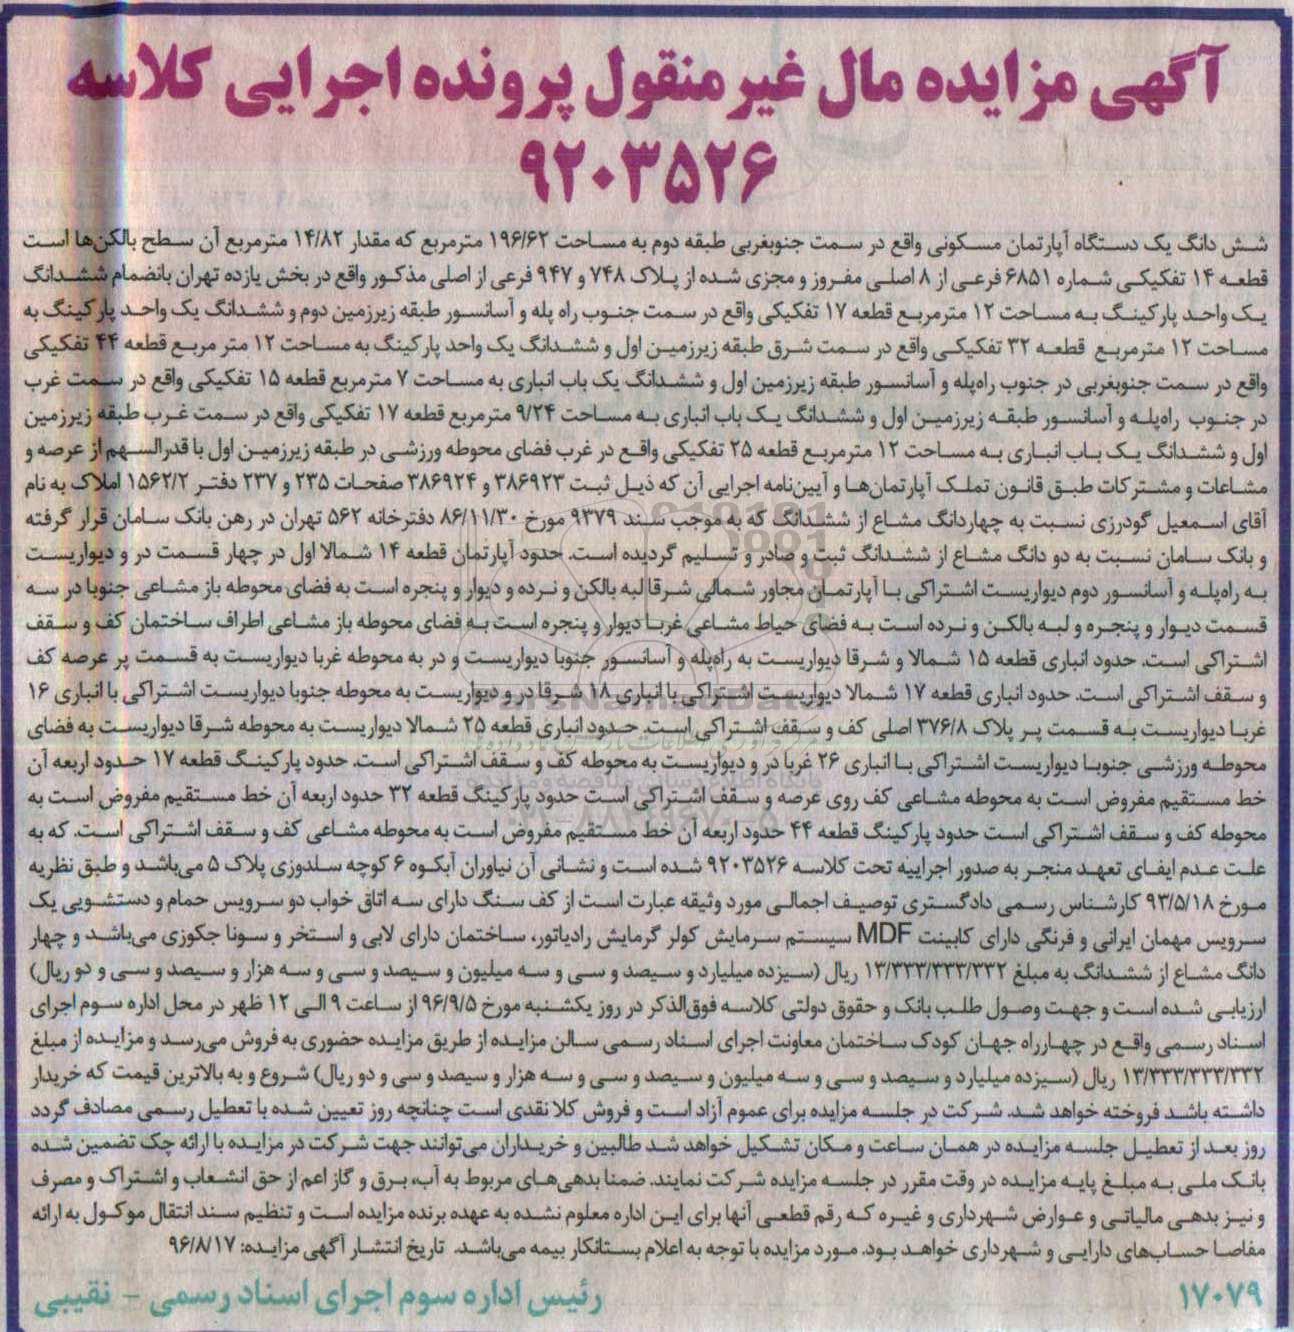 آگهی مزایده مال غیر منقول پرونده اجرایی کلاسه
۹۲۰۳۵۲۶
شش دانگ یک دستگاه آپارتمان مسکونی واقع در سمت جنوبغربی طبقه دوم به مساحت ۱۹۶/۶۲ مترمربع که مقدار ۱۴/۸۲ مترمربع آن سطح بالکن‌ها است
قطعه ۱۴ تفکیکی شماره ۶۸۵۱ فرعی از ۸ اصلی مفروز و مجزی شده از پلاک ۷۴۸ و ۹۴۷ فرعی از اصلی مذکور واقع در بخش یازده تهران بانضمام ششدانگ
یک واحد پارکینگ به مساحت ۱۲ مترمربع قطعه ۱۷ تفکیکی واقع در سمت جنوب راه پله و آسانسور طبقه زیرزمین دوم و ششدانگ یک واحد پارکینگ به
مساحت ۱۲ مترمربع قطعه ۳۲ تفکیکی واقع در سمت شرق طبقه زیرزمین اول و ششدانگ یک واحد پارکینگ به مساحت ۱۲ متر مربع قطعه ۴۴ تفکیکی
واقع در سمت جنوبغربی در جنوب راه‌پله و آسانسور طبقه زیرزمین اول و ششدانگ یک باب انباری به مساحت ۷ مترمربع قطعه ۱۵ تفکیکی واقع در سمت غرب
در جنوب راه‌پله و آسانسور طبقه زیرزمین اول و ششدانگ یک باب انباری به مساحت ۹/۲۴ مترمربع قطعه ۱۷ تفکیکی واقع در سمت غرب طبقه زیرزمین
اول و ششدانگ یک باب انباری به مساحت ۱۲ مترمربع قطعه ۲۵ تفکیکی واقع در غرب فضای محوطه ورزشی در طبقه زیرزمین اول با قدرالسهم از عرصه و
مشاعات و مشترکات طبق قانون تملک آپارتمان‌ها و آیین‌نامه اجرایی آن که ذیل ثبت ۳۸۶۹۲۳ و ۳۸۶۹۲۴ صفحات ۲۳۵ و ۲۳۷ دفتر ۱۵۶۲/۲ املاک به نام
آقای اسمعیل گودرزی نسبت به چهاردانگ مشاع از ششدانگ که به موجب سند ۹۳۷۹ مورخ ۸۶/۱۱/۳۰ دفترخانه ۵۶۲ تهران در رهن بانک سامان قرار گرفته
و بانک سامان نسبت به دو دانگ مشاع از ششدانگ ثبت و صادر و تسلیم گردیده است. حدود آپارتمان قطعه ۱۴ شمالا اول در چهار قسمت در و دیواریست
به راه‌پله و آسانسور دوم دیواریست اشتراکی با آپارتمان مجاور شمالی شرقا لبه بالکن و نرده و دیوار و پنجره است به فضای محوطه باز مشاعی جنوبا در سه
قسمت دیوار و پنجره و لبه بالکن و نرده است به فضای حیاط مشاعی غربا دیوار و پنجره است به فضای محوطه باز مشاعی اطراف ساختمان کف و سقف
اشتراکی است. حدود انباری قطعه ۱۵ شمالا و شرقا دیواریست به راه‌پله و آسانسور جنوبا دیواریست و در به محوطه غربا دیواریست به قسمت پر عرصه کف
و سقف اشتراکی است. حدود انباری قطعه ۱۷ شمالا دیواریست اشتراکی با انباری ۱۸ شرقا در و دیواریست به محوطه جنوبا دیواریست اشتراکی با انباری ۱۶
غربا دیواریست به قسمت پر پلاک ۳۷۶/۸ اصلی کف و سقف اشتراکی است. حدود انباری قطعه ۲۵ شمالا دیواریست به محوطه شرقا دیواریست به فضای
محوطه ورزشی جنوبا دیواریست اشتراکی با انباری ۲۶ غربا در و دیواریست به محوطه کف و سقف اشتراکی است. حدود پارکینگ قطعه ۱۷ حدود اربعه آن
خط مستقیم مفروض است به محوطه مشاعی کف روی عرصه و سقف اشتراکی است حدود پارکینگ قطعه ۳۲ حدود اربعه آن خط مستقیم مفروض است به
محوطه کف و سقف اشتراکی است حدود پارکینگ قطعه ۴۴ حدود اربعه آن خط مستقیم مفروض است به محوطه مشاعی کف و سقف اشتراکی است. که به
علت عدم ایفای تعهد منجر به صدور اجراییه تحت کلاسه ۹۲۰۳۵۲۶ شده است و نشانی آن نیاوران آبکوه ۶ کوچه سلدوزی پلاک ۵ می‌باشد و طبق نظریه
مورخ ۹۳/۵/۱۸ کارشناس رسمی دادگستری توصیف اجمالی مورد وثیقه عبارت است از کف سنگ دارای سه اتاق خواب دو سرویس حمام و دستشویی یک
سرویس مهمان ایرانی و فرنگی دارای کابینت MDF سیستم سرمایش کولر گرمایش رادیاتور، ساختمان دارای لابی و استخر و سونا جکوزی می‌باشد و چهار
دانگ مشاع از ششدانگ به مبلغ ۱۳/۳۳۳/۳۳۳/۳۳۲ ریال (سیزده میلیارد و سیصد و سی و سه میلیون و سیصد و سی و سه هزار و سیصد و سی و دو ریال)
ارزیابی شده است و جهت وصول طلب بانک و حقوق دولتی کلاسه فوق‌الذکر در روز یکشنبه مورخ ۹۶/۹/۵ از ساعت ۹ الی ۱۲ ظهر در محل اداره سوم اجرای
اسناد رسمی واقع در چهارراه جهان کودک ساختمان معاونت اجرای اسناد رسمی سالن مزایده از طریق مزایده حضوری به فروش می‌رسد و مزایده از مبلغ
۱۳/۳۳۳/۳۳۳/۳۳۲ ریال (سیزده میلیارد و سیصد و سی و سه میلیون و سیصد و سی و سه هزار و سیصد و سی و دو ریال) شروع و به بالاترین قیمت که خریدار
داشته باشد فروخته خواهد شد. شرکت در جلسه مزایده برای عموم آزاد است و فروش کلا نقدی است چنانچه روز تعیین شده با تعطیل رسمی مصادف گردد
روز بعد از تعطیل جلسه مزایده در همان ساعت و مکان تشکیل خواهد شد طالبین و خریداران می‌توانند جهت شرکت در مزایده با ارائه چک تضمین شده
بانک ملی به مبلغ پایه مزایده در وقت مقرر در جلسه مزایده شرکت نمایند. ضمنا بدهی‌های مربوط به آب، برق و گاز اعم از حق انشعاب و اشتراک و مصرف
و نیز بدهی مالیاتی و عوارض شهرداری و غیره که رقم قطعی آنها برای این اداره معلوم نشده به عهده برنده مزایده است و تنظیم سند انتقال موکول به ارائه
مفاصا حساب‌های دارایی و شهرداری خواهد بود. مورد مزایده با توجه به اعلام بستانکار بیمه می‌باشد. تاریخ انتشار آگهی مزایده: ۹۶/۸/۱۷
۱۷۰۷۹ رئیس اداره سوم اجرای اسناد رسمی - نقیبی